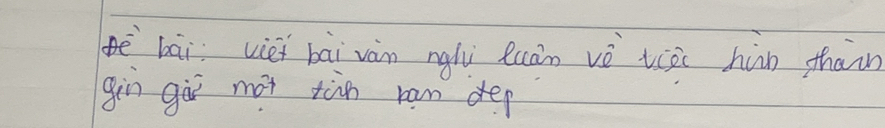 Đề bài: viết bài văn nghị luận về việc hình thành
gìn giữ một tình bạn đẹp